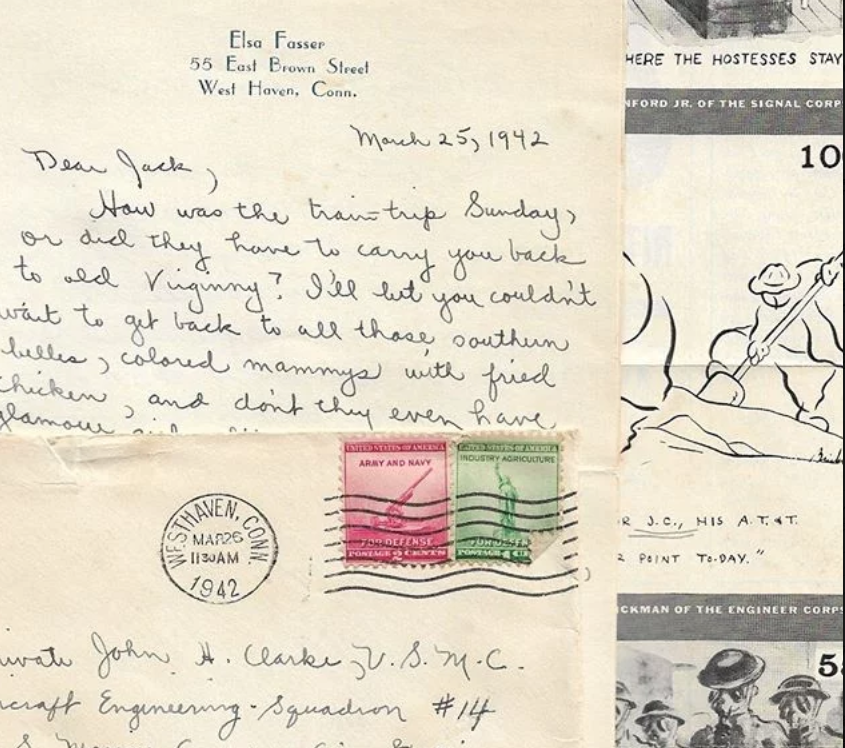 Elsa Fasser
55 East Brown Street
West Haven, Conn.
March 25, 1942
Dear Jack,
How was the train-trip Sunday,
or did they have to carry you back
to old Virginny? I'll bet you couldn't
wait to get back to all those southern
belles, colored mammys with fried
chicken, and don't they even have
glamour
UNITED STATES OF AMERICA
ARMY AND NAVY
FOR DEFENSE
POSTAGE 2 CENTS
UNITED STATES OF AMERICA
INDUSTRY AGRICULTURE
FOR DEFENSE
POSTAGE 1¢
WESTHAVEN, CONN.
MAR 26
11 30 AM
1942
ivate John H. Clarke, U.S.M.C.
craft Engineering Squadron #14
HERE THE HOSTESSES STAY
NFORD JR. OF THE SIGNAL CORP
10
R J.C., HIS A.T.&T.
POINT TO-DAY."
ICKMAN OF THE ENGINEER CORPS
5